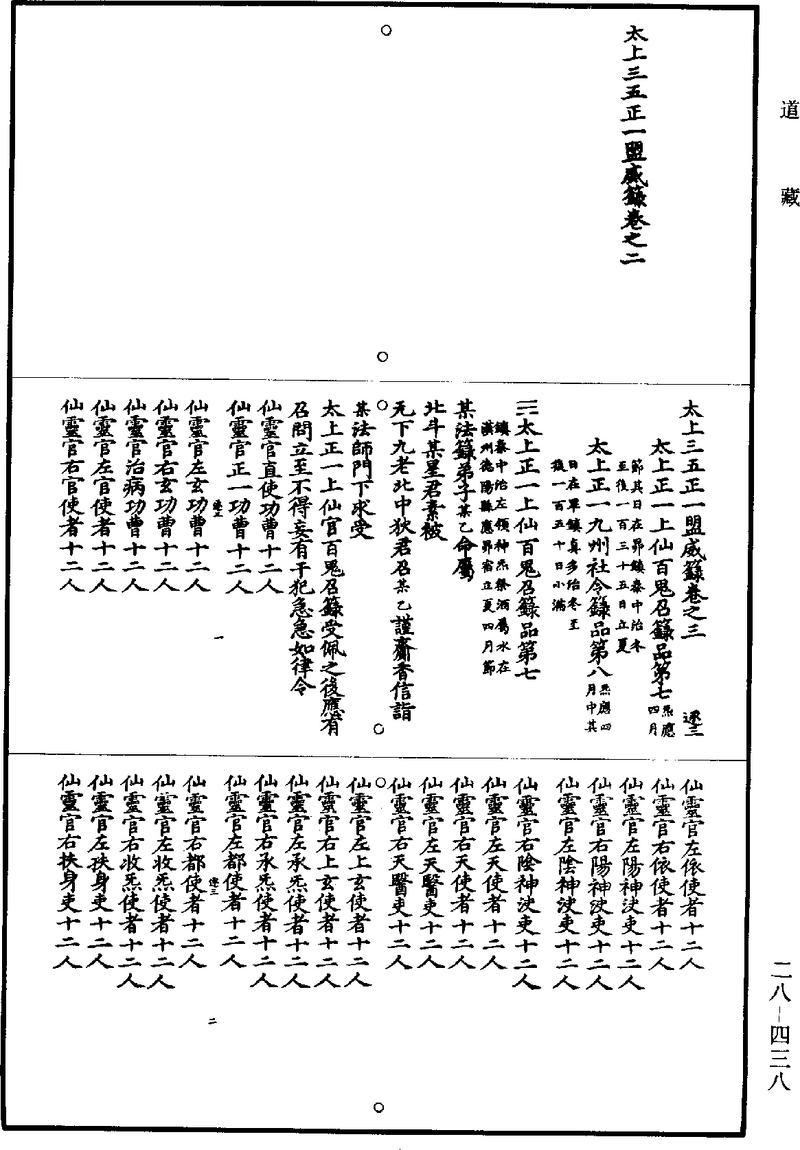 道藏
太上三五正一盟威籙卷之二
太上三五正一盟威籙卷之三 逐三
太上正一上仙百鬼召籙品第七炁應四月
節其日在昴鎮秦中治冬
至後一百三十五日立夏
太上正一九州社令籙品第八炁應四月中其
日在畢鎮真多治冬至
後一百五十日小滿
太上正一上仙百鬼召籙品第七
鎮秦中治左領神炁祭酒屬水在
漢州德陽縣應昴宿立夏四月節
某法籙弟子某乙命屬
北斗某星君素被
元下九老北中狄君召某乙謹齋香信詣
某法師門下求受
太上正一上仙官百鬼召籙受佩之後應有
召問立至不得妄有干犯急急如律令
仙靈官直使功曹十二人
仙靈官正一功曹十二人
逐三
一
仙靈官左玄功曹十二人
仙靈官右玄功曹十二人
仙靈官治病功曹十二人
仙靈官左官使者十二人
仙靈官右官使者十二人
仙靈官左依使者十二人
仙靈官右依使者十二人
仙靈官左陽神決吏十二人
仙靈官右陽神決吏十二人
仙靈官左陰神決吏十二人
仙靈官右陰神決吏十二人
仙靈官左天使者十二人
仙靈官右天使者十二人
仙靈官左天醫吏十二人
仙靈官右天醫吏十二人
仙靈官左上玄使者十二人
仙靈官右上玄使者十二人
仙靈官左承炁使者十二人
仙靈官右承炁使者十二人
仙靈官左都使者十二人
逐三
二
仙靈官右都使者十二人
仙靈官左收炁使者十二人
仙靈官右收炁使者十二人
仙靈官左扶身吏十二人
仙靈官右扶身吏十二人
二八-四三八